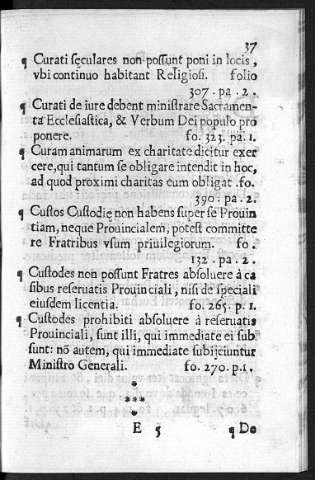 37
¶ Curati sęculares non possunt poni in locis,
vbi continuo habitant Religiosi. folio
307. pa. 2.
¶ Curati de iure debent ministrare Sacramen-
ta Ecclesiastica, & Verbum Dei populo pro
ponere. fo. 323. pa. 1.
¶ Curam animarum ex charitate dicitur exer
cere, qui tantum se obligare intendit in hoc,
ad quod proximi charitas eum obligat. fo.
390. pa. 2.
¶ Custos Custodię non habens super se Prouin
tiam, neque Prouincialem, potest committe
re Fratribus vsum priuilegiorum. fo.
132. pa. 2.
¶ Custodes non possunt Fratres absoluere à ca
sibus reseruatis Prouinciali, nisi de speciali
eiusdem licentia. fo. 265. p. 1.
¶ Custodes prohibiti absoluere à reseruatis
Prouinciali, sunt illi, qui immediate ei sub
sunt: nõ autem, qui immediate subijciuntur
Ministro Generali. fo. 270. p. 1.
*
***
*
E 5 ¶ De